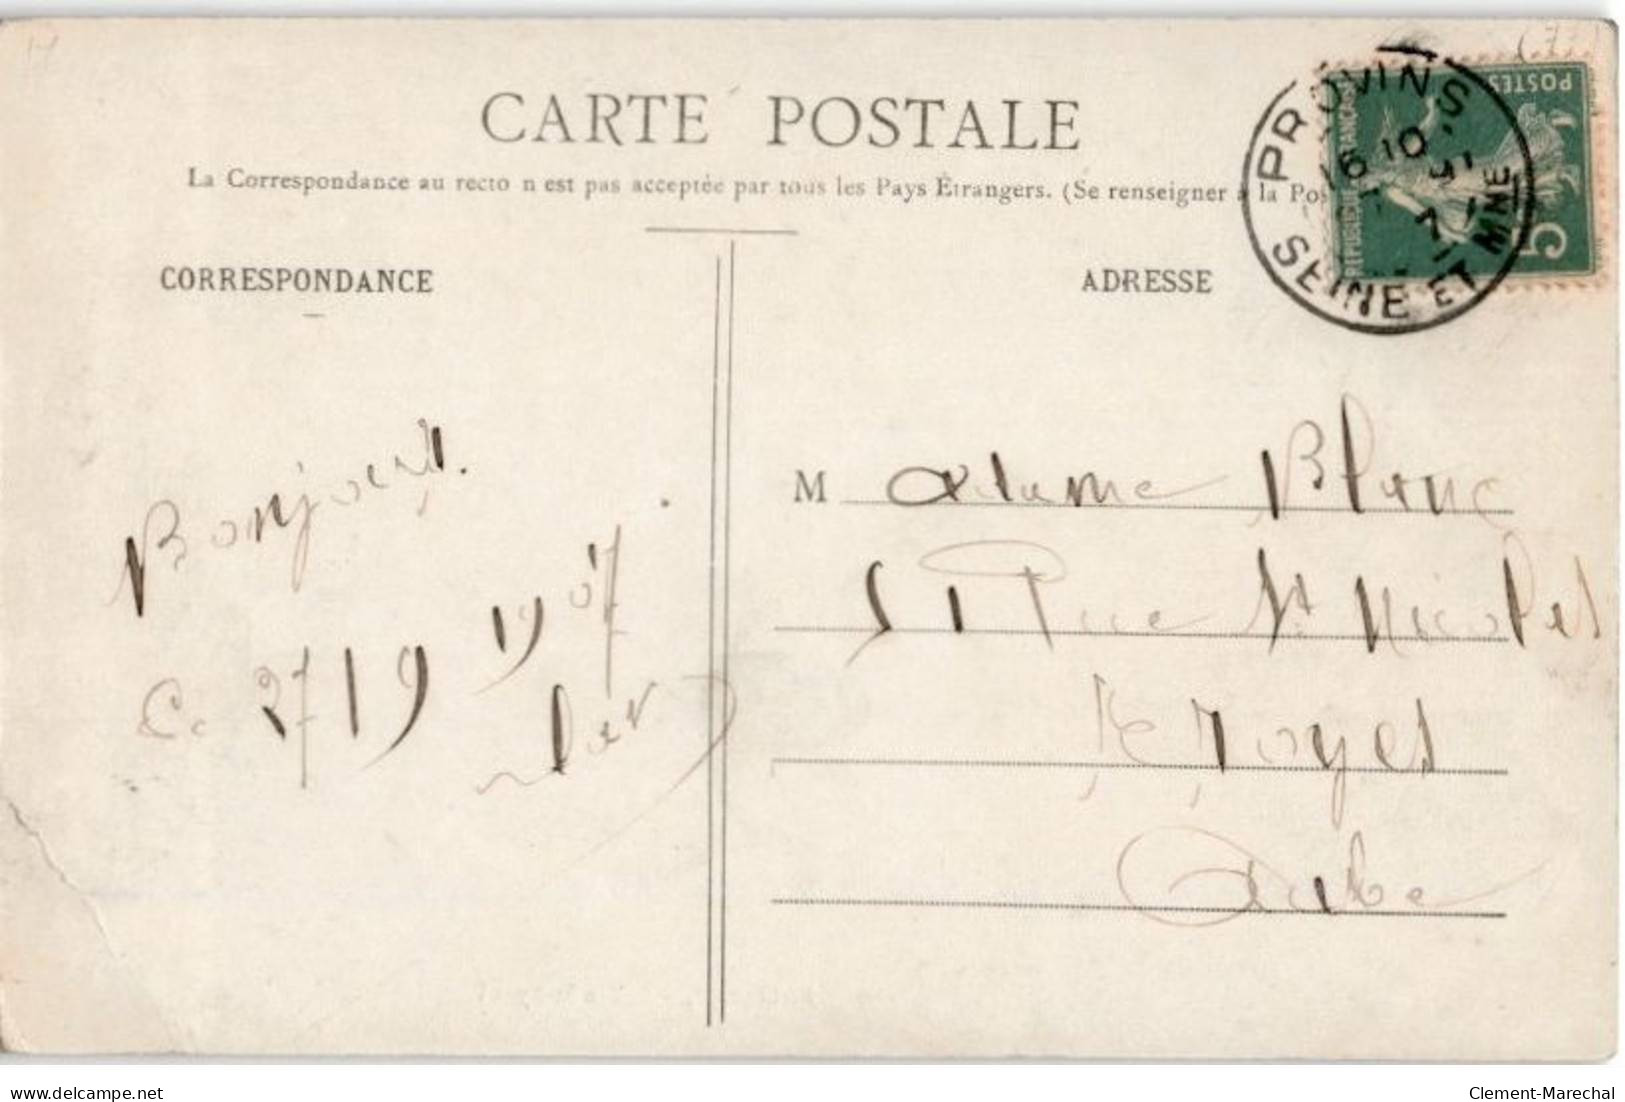 CARTE POSTALE
La Correspondance au recto n est pas acceptée par tous les Pays Étrangers. (Se renseigner à la Pos
CORRESPONDANCE
ADRESSE
PROVINS
16 10
SEINE ET MNE
POSTES
REPUBLIQUE FRANÇAISE
5
Bonjour.
Ce 27 / 9 1907
Madame Blanc
51 Rue St Nicolas
Troyes
Aube
delcampe.net
Clement-Marechal